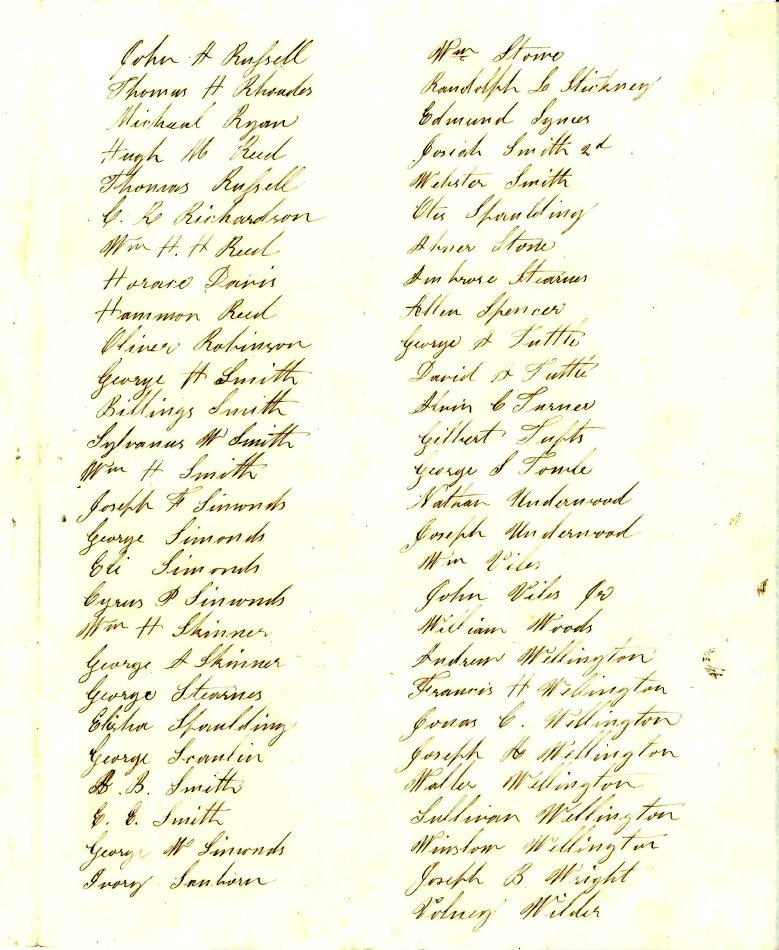 John A Russell
Thomas H Rhoades
Michael Ryan
Hugh M Reed
Thomas Russell
C. R Richardson
Wm H. H Reed
Horace Davis
Hammon Reed
Oliver Robinson
George H Smith
Billings Smith
Sylvanus W Smith
Wm H Smith
Joseph F Simonds
George Simonds
Eli Simonds
Cyrus P Simonds
Wm H Skinner
George A Skinner
George Stearnes
Elisha Spaulding
George Scanlin
A. B. Smith
E. E. Smith
George W Simonds
Ivory Sanborn
Wm Stowe
Randolph L Stickney
Edmund Symes
Josiah Smith 2d
Webster Smith
Otis Spaulding
Abner Stone
Ambrose Stearns
Allen Spencer
George A Tuttle
David A Tuttle
Alvin C Turner
Gilbert Tufts
George S Towle
Nathan Underwood
Joseph Underwood
Wm Viles
John Viles Jr
William Woods
Andrew Wellington
Francis H Wellington
Jonas C. Wellington
Joseph H Wellington
Walter Wellington
Sullivan Wellington
Winslow Wellington
Joseph B Wright
Volney Wilder